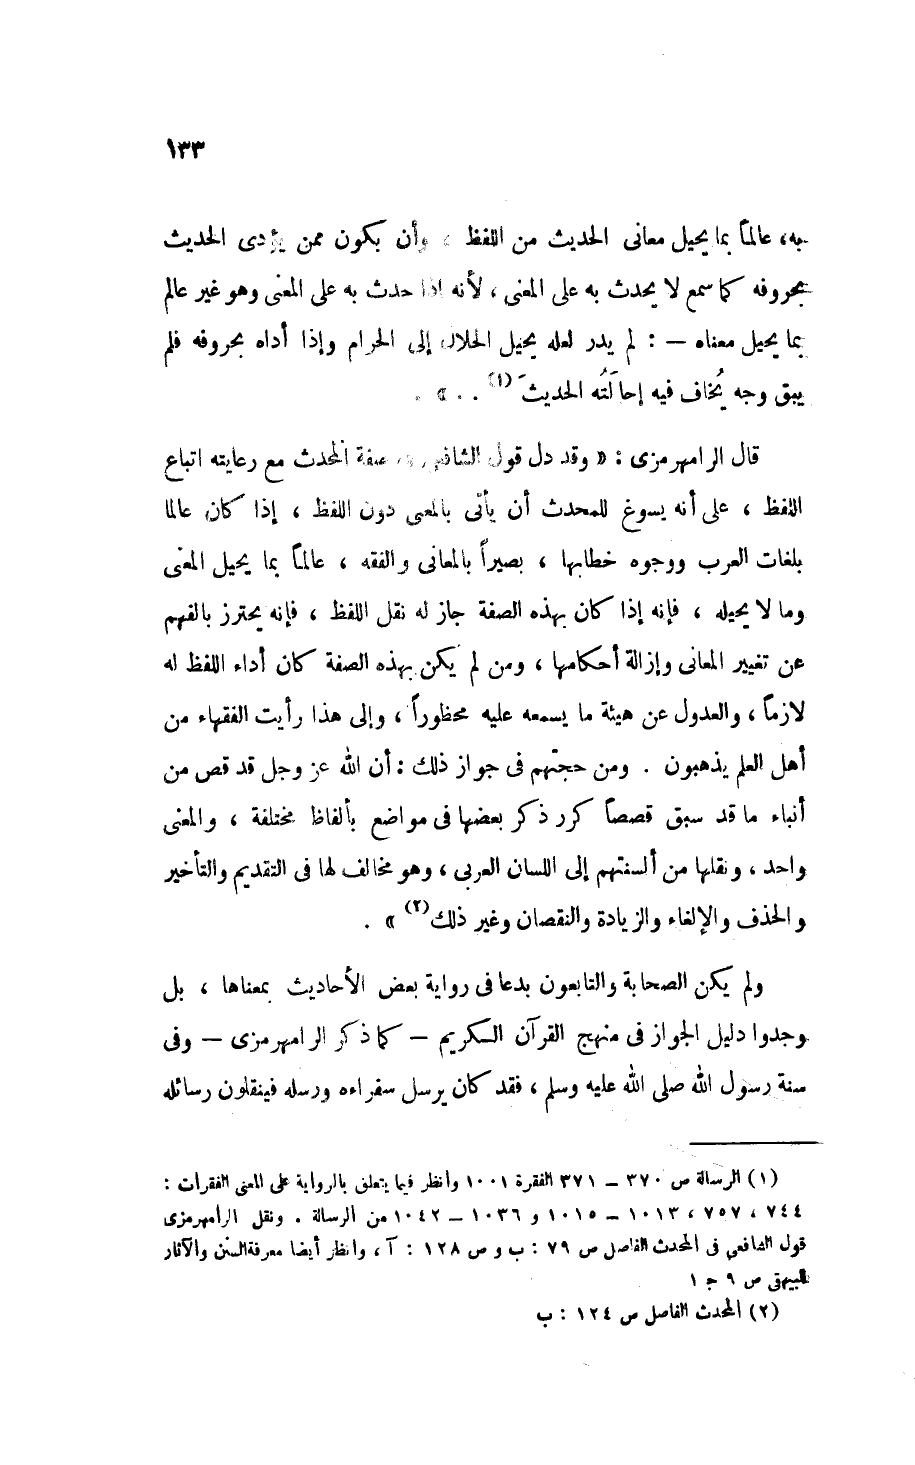 ١٣٣
به، عالماً بما يحيل معانى الحديث من اللفظ ، وأن يكون ممن يؤدى الحديث
بحروفه كما سمع لا يحدث به على المعنى ، لأنه إذا حدث به على المعنى وهو غير عالم
بما يحيل معناه — : لم يدر لعله يحيل الحلال إلى الحرام وإذا أداه بحروفه فلم
يبق وجه يُخاف فيه إحالَتُه الحديثَ (١) . . » .
قال الرامهرمزى : « وقد دل قول الشافعى فى صفة المحدث مع رعايته اتباع
اللفظ ، على أنه يسوغ للمحدث أن يأتى بالمعنى دون اللفظ ، إذا كان عالما
بلغات العرب ووجوه خطابها ، بصيراً بالمعانى والفقه ، عالماً بما يحيل المعنى
وما لا يحيله ، فإنه إذا كان بهذه الصفة جاز له نقل اللفظ ، فإنه يحترز بالفهم
عن تغيير المعانى وإزالة أحكامها ، ومن لم يكن بهذه الصفة كان أداء اللفظ له
لازماً ، والعدول عن هيئة ما يسمعه عليه محظوراً ، وإلى هذا رأيت الفقهاء من
أهل العلم يذهبون . ومن حجتهم فى جواز ذلك : أن الله عز وجل قد قص من
أنباء ما قد سبق قصصاً كرر ذكر بعضها فى مواضع بألفاظ مختلفة ، والمعنى
واحد ، ونقلها من ألسنتهم إلى اللسان العربى ، وهو مخالف لها فى التقديم والتأخير
والحذف والإلغاء والزيادة والنقصان وغير ذلك (٢) » .
ولم يكن الصحابة والتابعون بدعا فى رواية بعض الأحاديث بمعناها ، بل
وجدوا دليل الجواز فى منهج القرآن الكريم — كما ذكر الرامهرمزى — وفى
سنة رسول الله صلى الله عليه وسلم ، فقد كان يرسل سفراءه ورسله فينقلون رسائله
(١) الرسالة ص ٣٧٠ — ٣٧١ الفقرة ١٠٠١ وانظر فيما يتعلق بالرواية على المعنى الفقرات :
٧٤٤ ، ٧٥٧ ، ١٠١٣ — ١٠١٥ و ١٠٣٦ — ١٠٤٢ من الرسالة . ونقل الرامهرمزى
قول الشافعى فى المحدث الفاصل ص ٧٩ : ب و ص ١٢٨ : آ ، وانظر أيضا معرفة السنن والآثار
للبيهقى ص ٩ ج ١
(٢) المحدث الفاصل ص ١٢٤ : ب